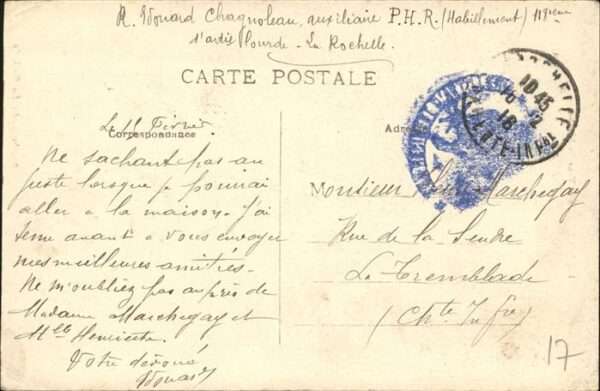 R. Edouard Chagnoleau, auxiliaire P.H.R. (Habillement) 118ème
d'artie Lourde - La Rochelle.
CARTE POSTALE
LA ROCHELLE
10 45
16 2
18
Correspondance
Adresse
Le 16 Février
Ne sachant pas au
juste lorsque je pourrai
aller à la maison. J'ai
tenu avant à vous envoyer
mes meilleures amitiés.
Ne m'oubliez pas auprès de
Madame Marchegay et
Mlle Henriette.
Votre dévoué
Edouard
Monsieur Marchegay
Rue de la Seudre
La Tremblade
(Chte Infre)
17